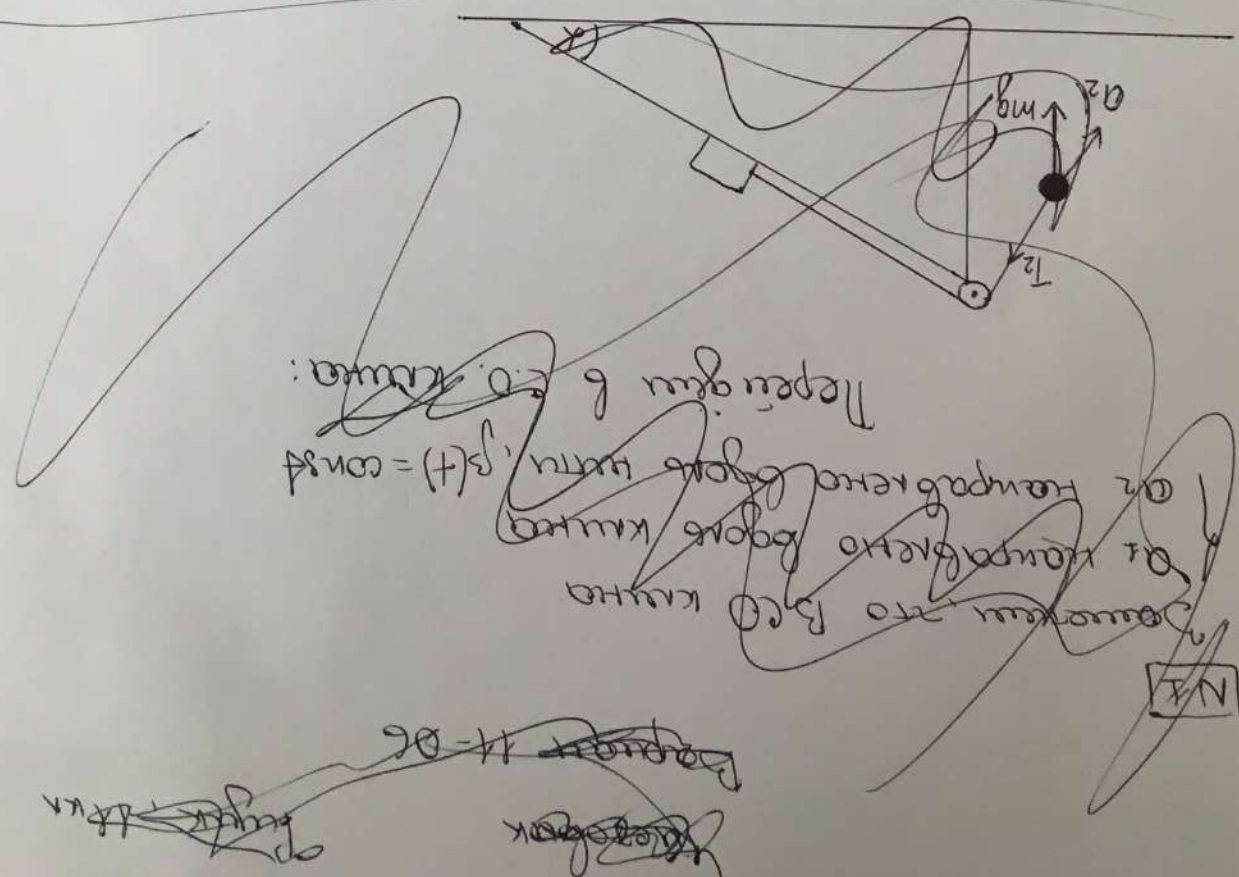 Черновик
Физик
Вариант 11-06
N1
Заметим, что в СО клина
a1 направлено вдоль клина
a2 направлено вдоль нити, β(t) = const
Перейдём в С.О. клина:
T2
mg
a2
α